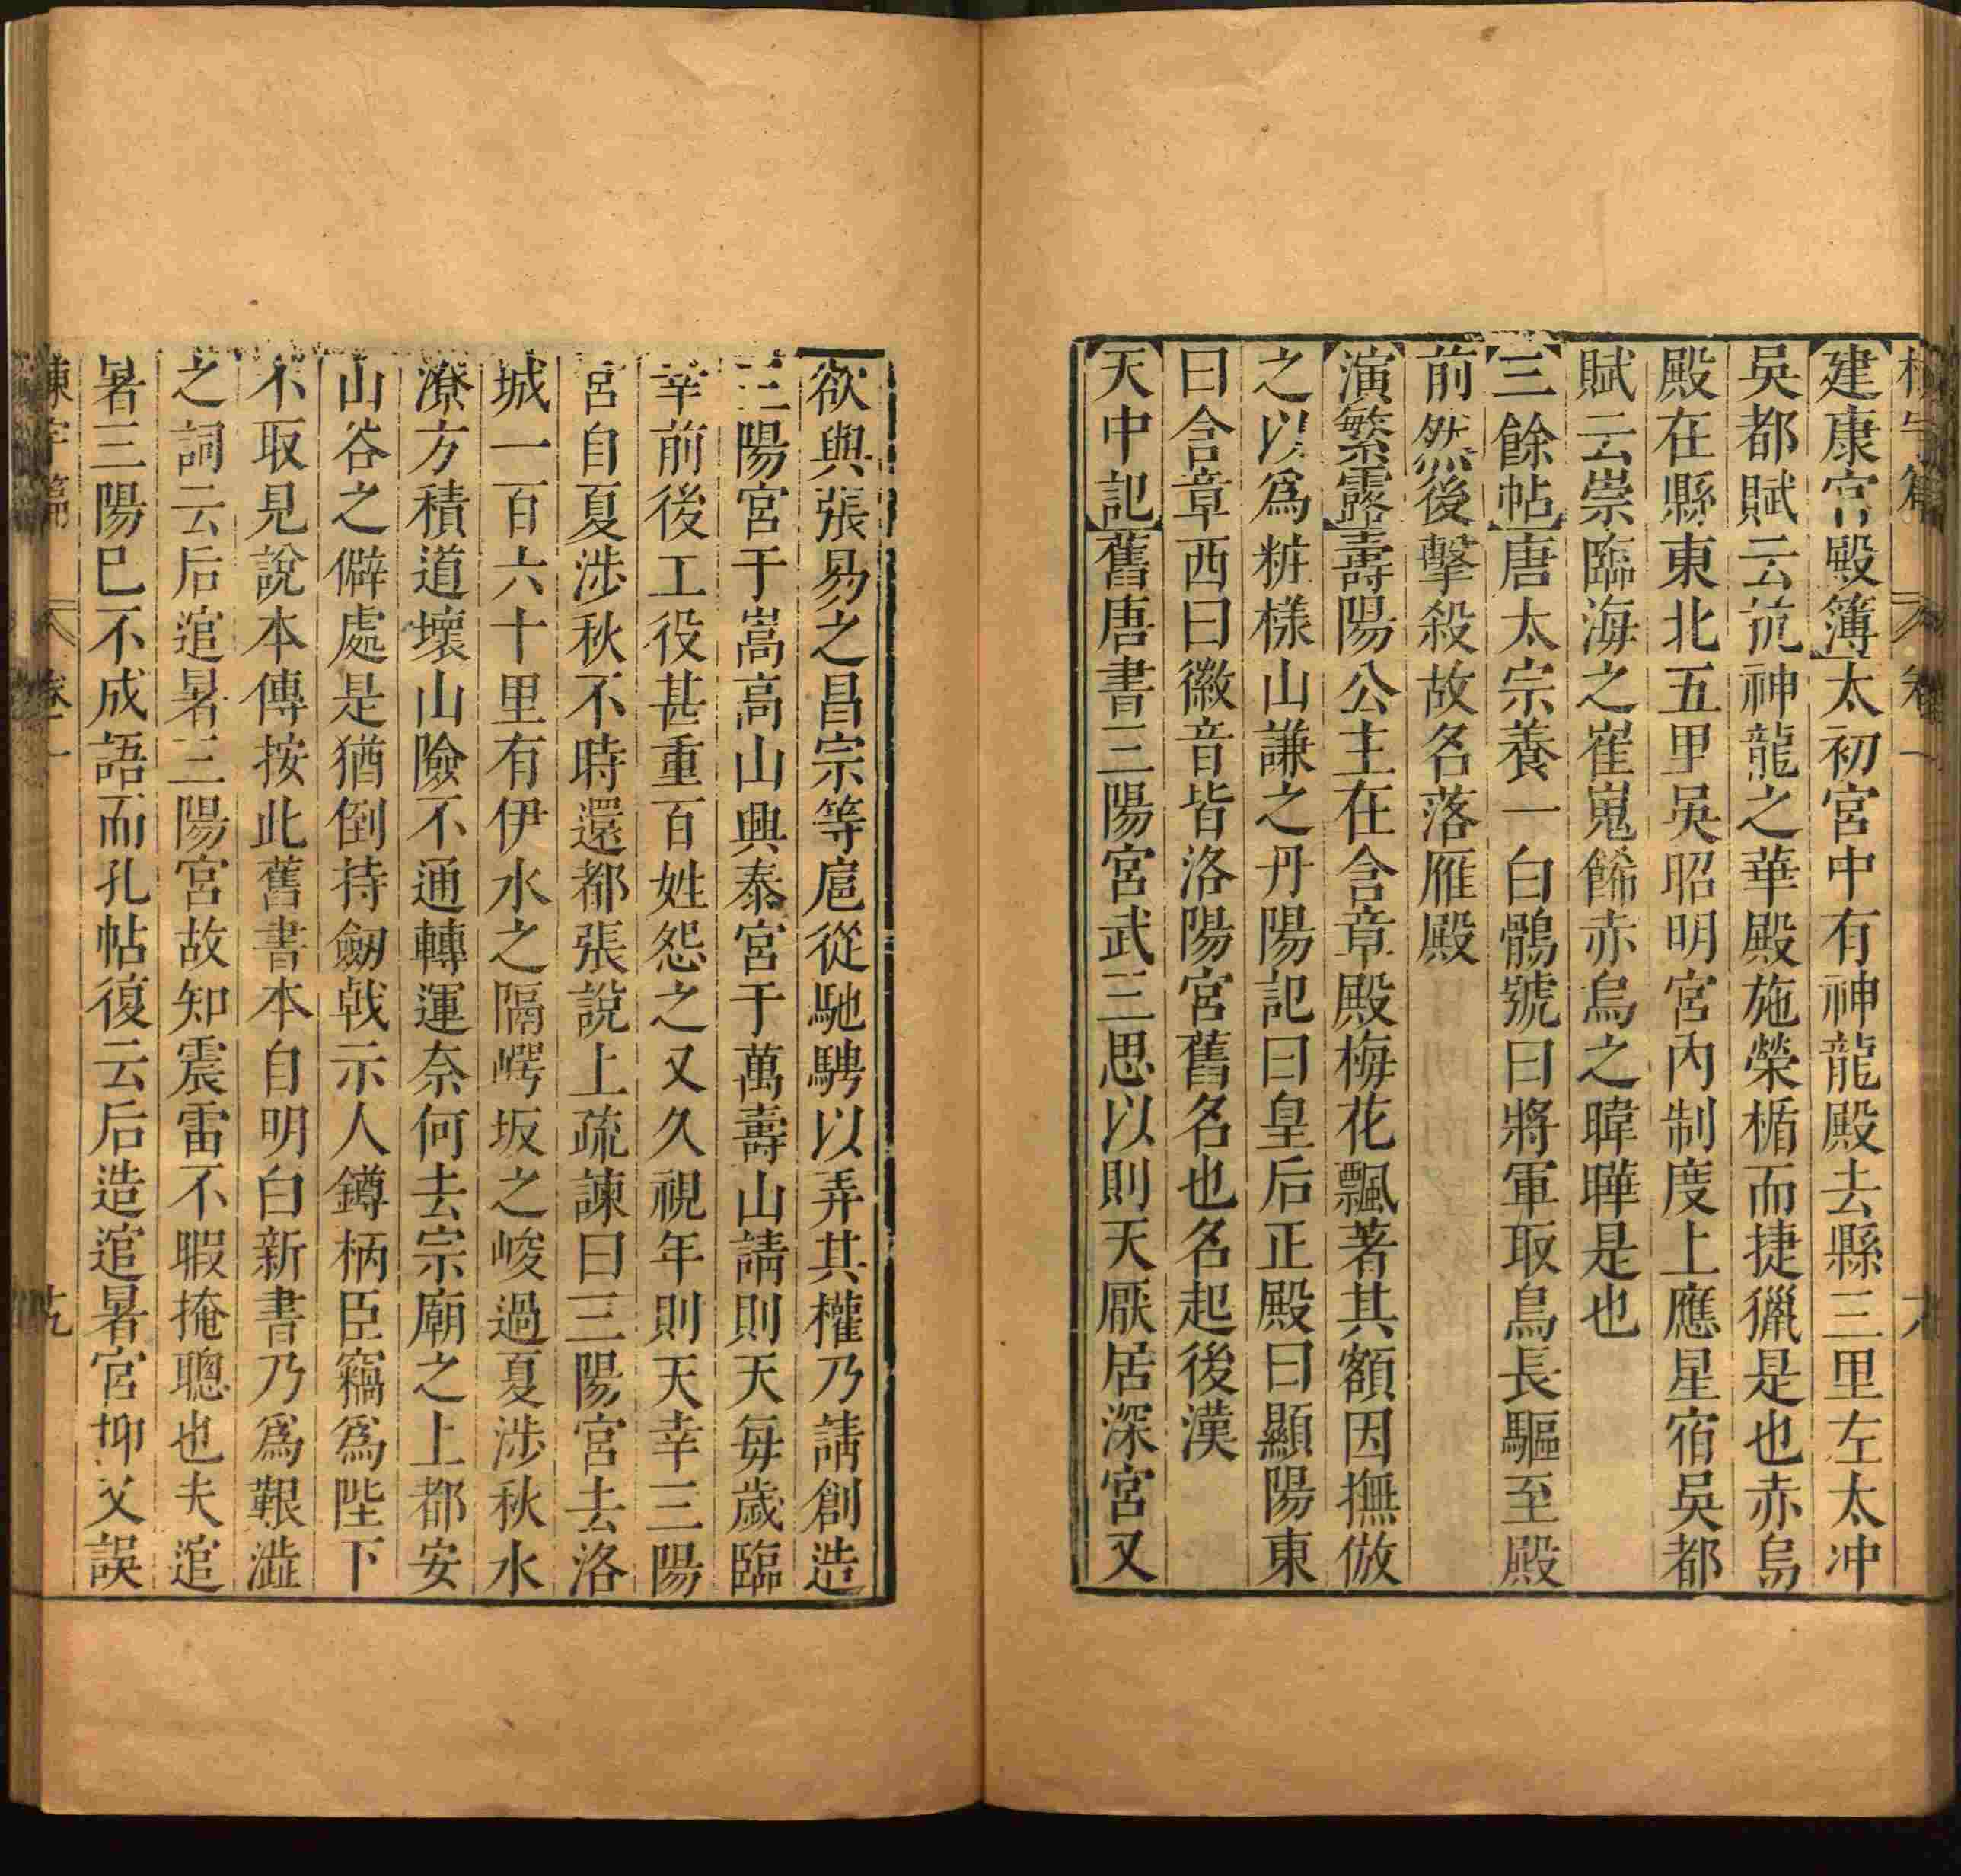 建康宮殿簿太初宮中有神龍殿去縣三里左太冲
吳都賦云抗神龍之華殿施榮楯而捷獵是也赤烏
殿在縣東北五里吳昭明宮內制度上應星宿吳都
賦云崇臨海之崔嵬餙赤烏之暐曄是也
三餘帖唐太宗養一白鶻號曰將軍取鳥長驅至殿
前然後擊殺故名落雁殿
演繁露壽陽公主在含章殿梅花飄著其額因撫倣
之以爲粧樣山謙之丹陽記曰皇后正殿曰顯陽東
曰含章西曰徽音皆洛陽宮舊名也名起後漢
天中記舊唐書三陽宮武三思以則天厭居深宮又
欲與張易之昌宗等扈從馳騁以弄其權乃請創造
三陽宮于嵩高山興泰宮于萬壽山請則天每歲臨
幸前後工役甚重百姓怨之又久視年則天幸三陽
宮自夏涉秋不時還都張說上疏諫曰三陽宮去洛
城一百六十里有伊水之隔崿坂之峻過夏涉秋水
潦方積道壞山險不通轉運奈何去宗廟之上都安
山谷之僻處是猶倒持劒戟示人鐏柄臣竊爲陛下
不取見說本傳按此舊書本自明白新書乃爲艱澁
之詞云后逭暑三陽宮故知震雷不暇掩聰也夫逭
暑三陽已不成語而孔帖復云后造逭暑宮抑又誤